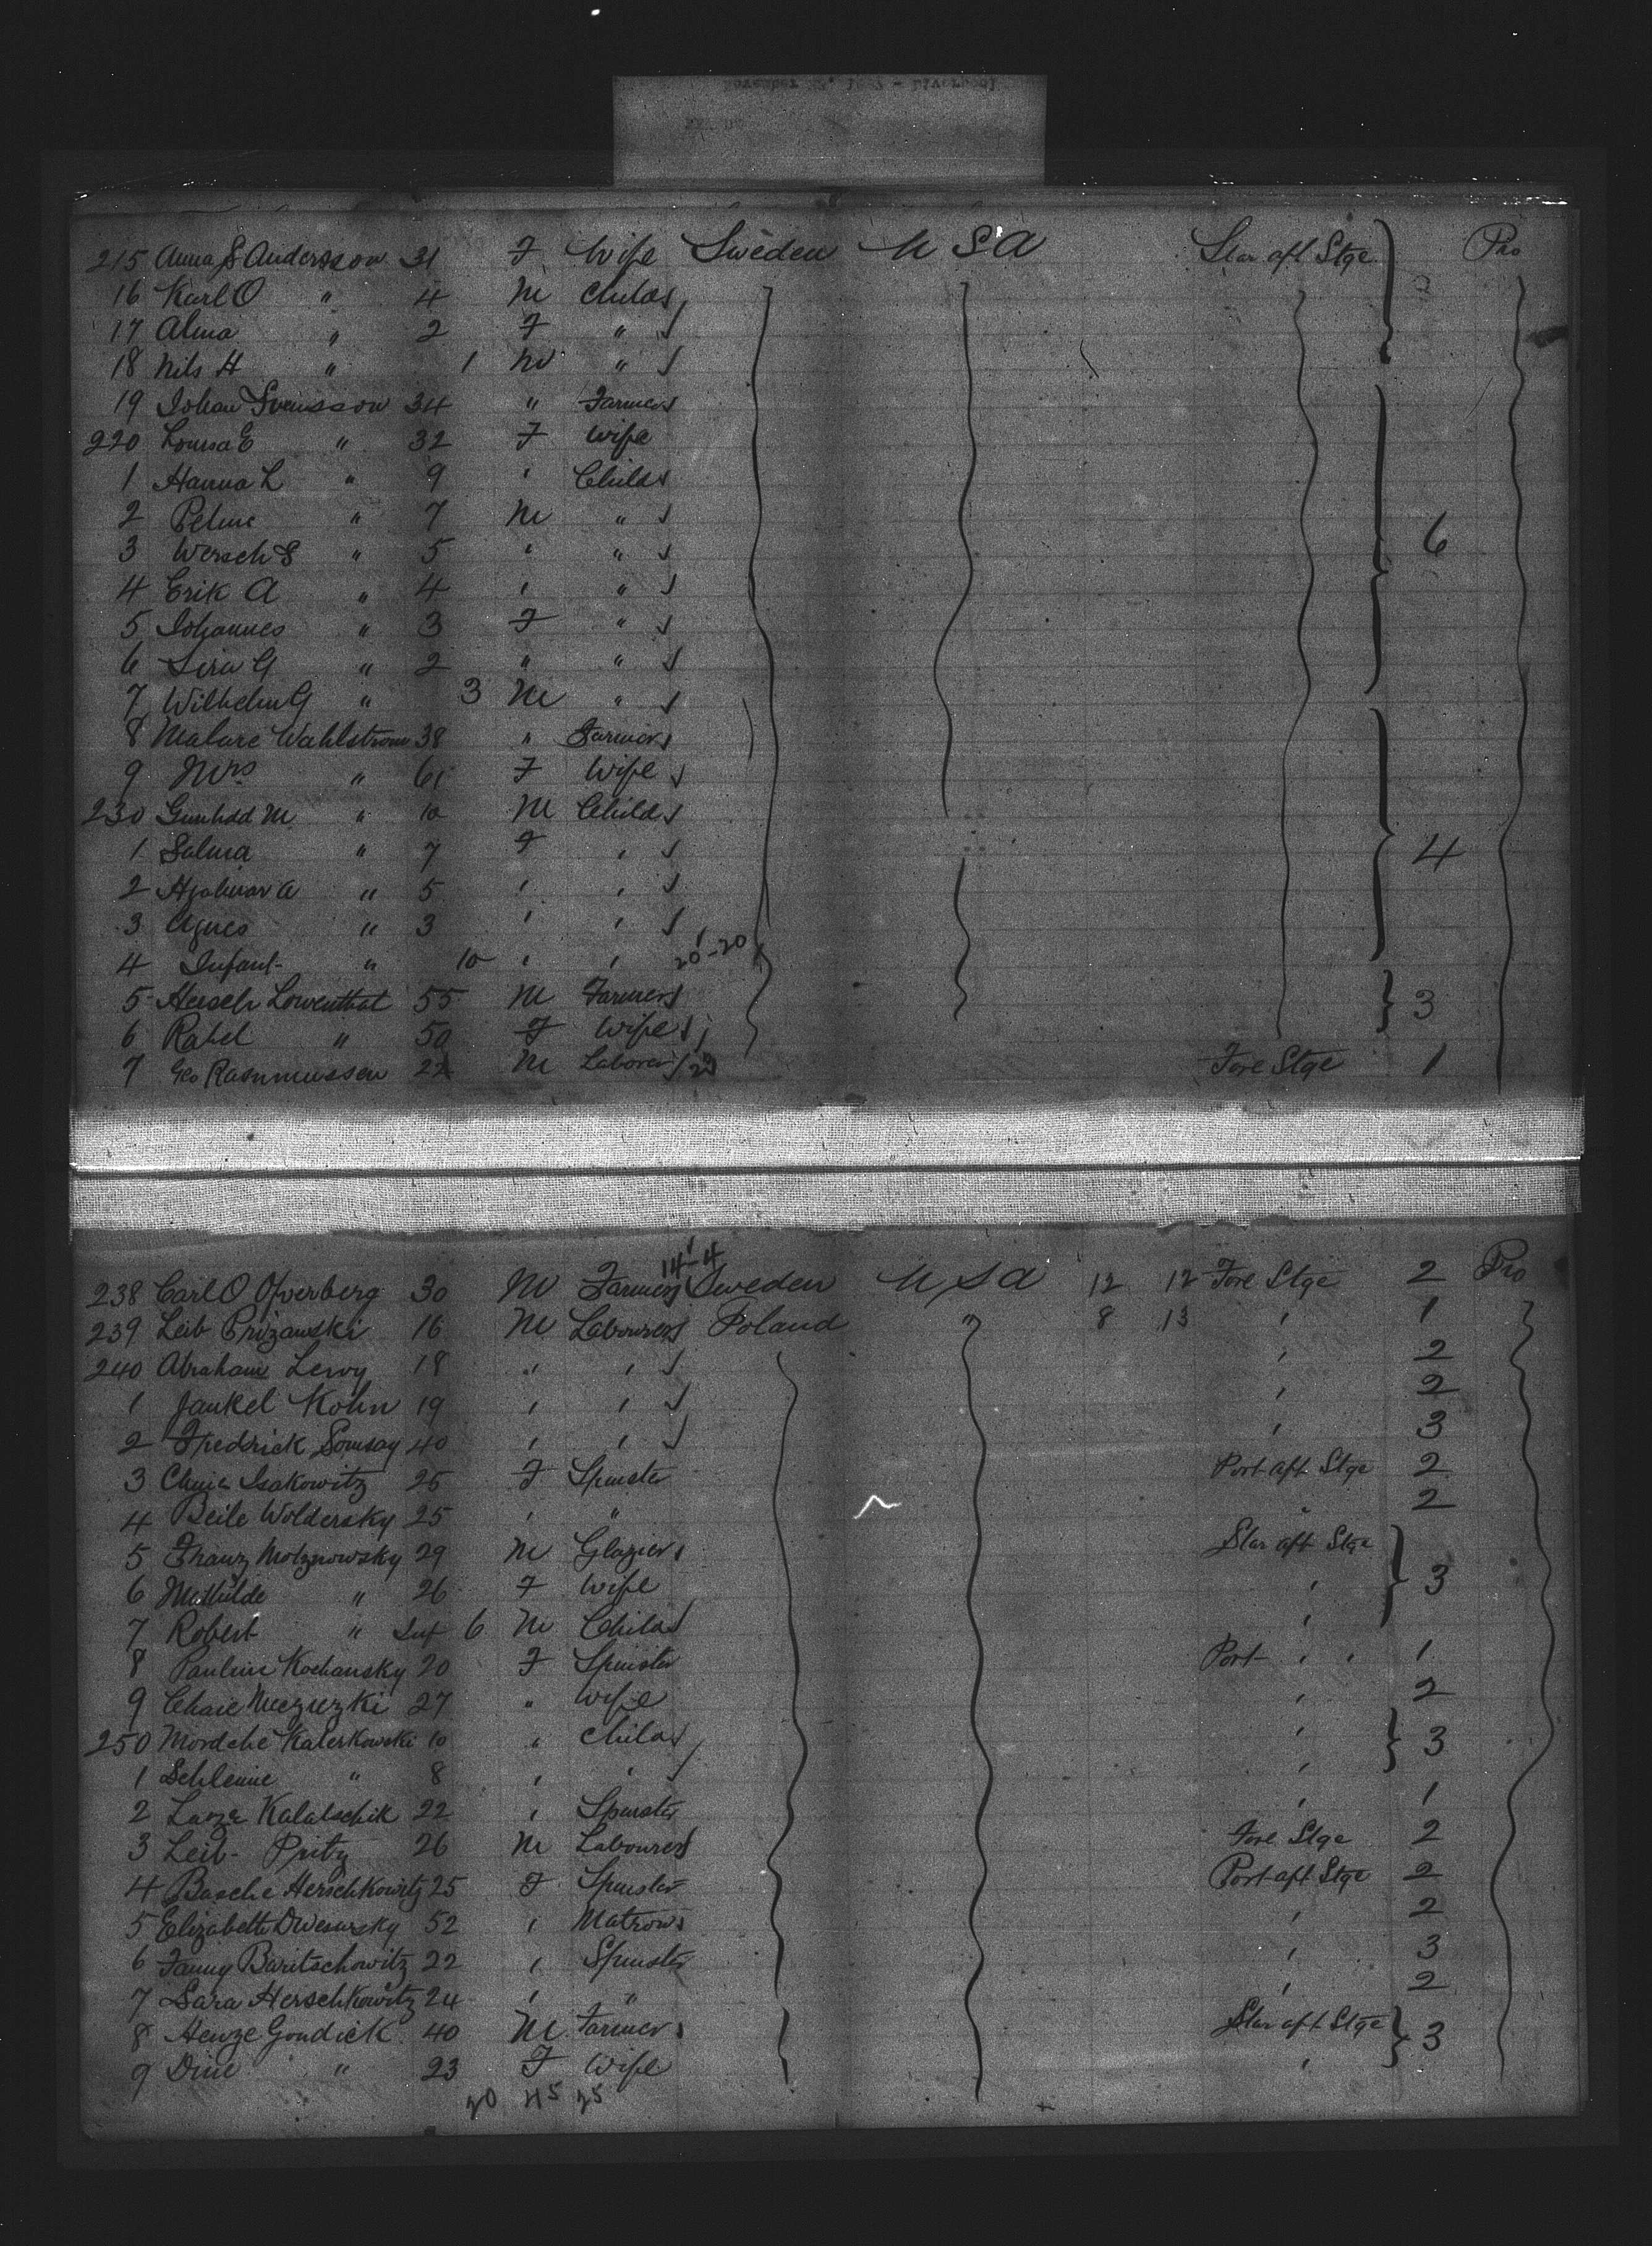 215 Anna S Andersson 31 F Wife Sweden U S A Star aft Stge Pro
16 Karl O " 4 M Child
17 Alma " 2 F "
18 Nils H " 1 M "
19 Johan Svensson 34 " Farmer
220 Lovisa E " 32 F Wife
1 Hanna L " 9 ' Child
2 " 7 M "
3 " 5 ' " 6
4 Erik A " 4 ' "
5 Johannes " 3 F "
6 G " 2 " "
7 Wilhelm G " 3 M "
8 Malare Wahlstrom 38 " Farmer
9 Mrs " 61 F Wife
230 M " 10 M Child
1 Salma " 7 F ' 4
2 Hjalmar A " 5 ' '
3 Agnes " 3 ' '
4 Infant " 10 ' ' 20-20
5 Hersch Lowenthal 55 M Farmer 3
6 Rahel " 50 F Wife
7 Geo Rasmmussen 22 M Laborer Fore Stge 1
14-4
238 Carl O Ofverberg 30 M Farmer Sweden U S A 12 12 Fore Stge 2 Pro
239 Leib Prizawski 16 M Labourer Poland 8 13 ' 1
240 Abraham Levy 18 " ' ' 2
1 Jankel Kohn 19 ' ' ' 2
2 Fredrick 40 ' ' ' 3
3 Isakowitz 25 F Spinster Port aft Stge 2
4 Beile Woldersky 25 ' " " 2
5 Franz Motznowsky 29 M Glazier Star aft Stge
6 Mathilde " 26 F Wife ' 3
7 Robert " Inf 6 M Child '
8 Pauline Kochansky 20 F Spinster Port ' ' 1
9 Chaie 27 " Wife ' 2
250 Mordche Katerkowski 10 " Child ' 3
1 Schleme " 8 ' ' '
2 Kalatschik 22 ' Spinster ' 1
3 Leib Pritz 26 M Labourer Fore Stge 2
4 Basche Herschkowitz 25 F Spinster Port aft Stge 2
5 Elizabeth 52 ' Matron ' 2
6 Fanny Baritschowitz 22 ' Spinster ' 3
7 Sara Herschkowitz 24 ' " ' 2
8 Gondick 40 M Farmer Star aft Stge 3
9 Dine " 23 F Wife '